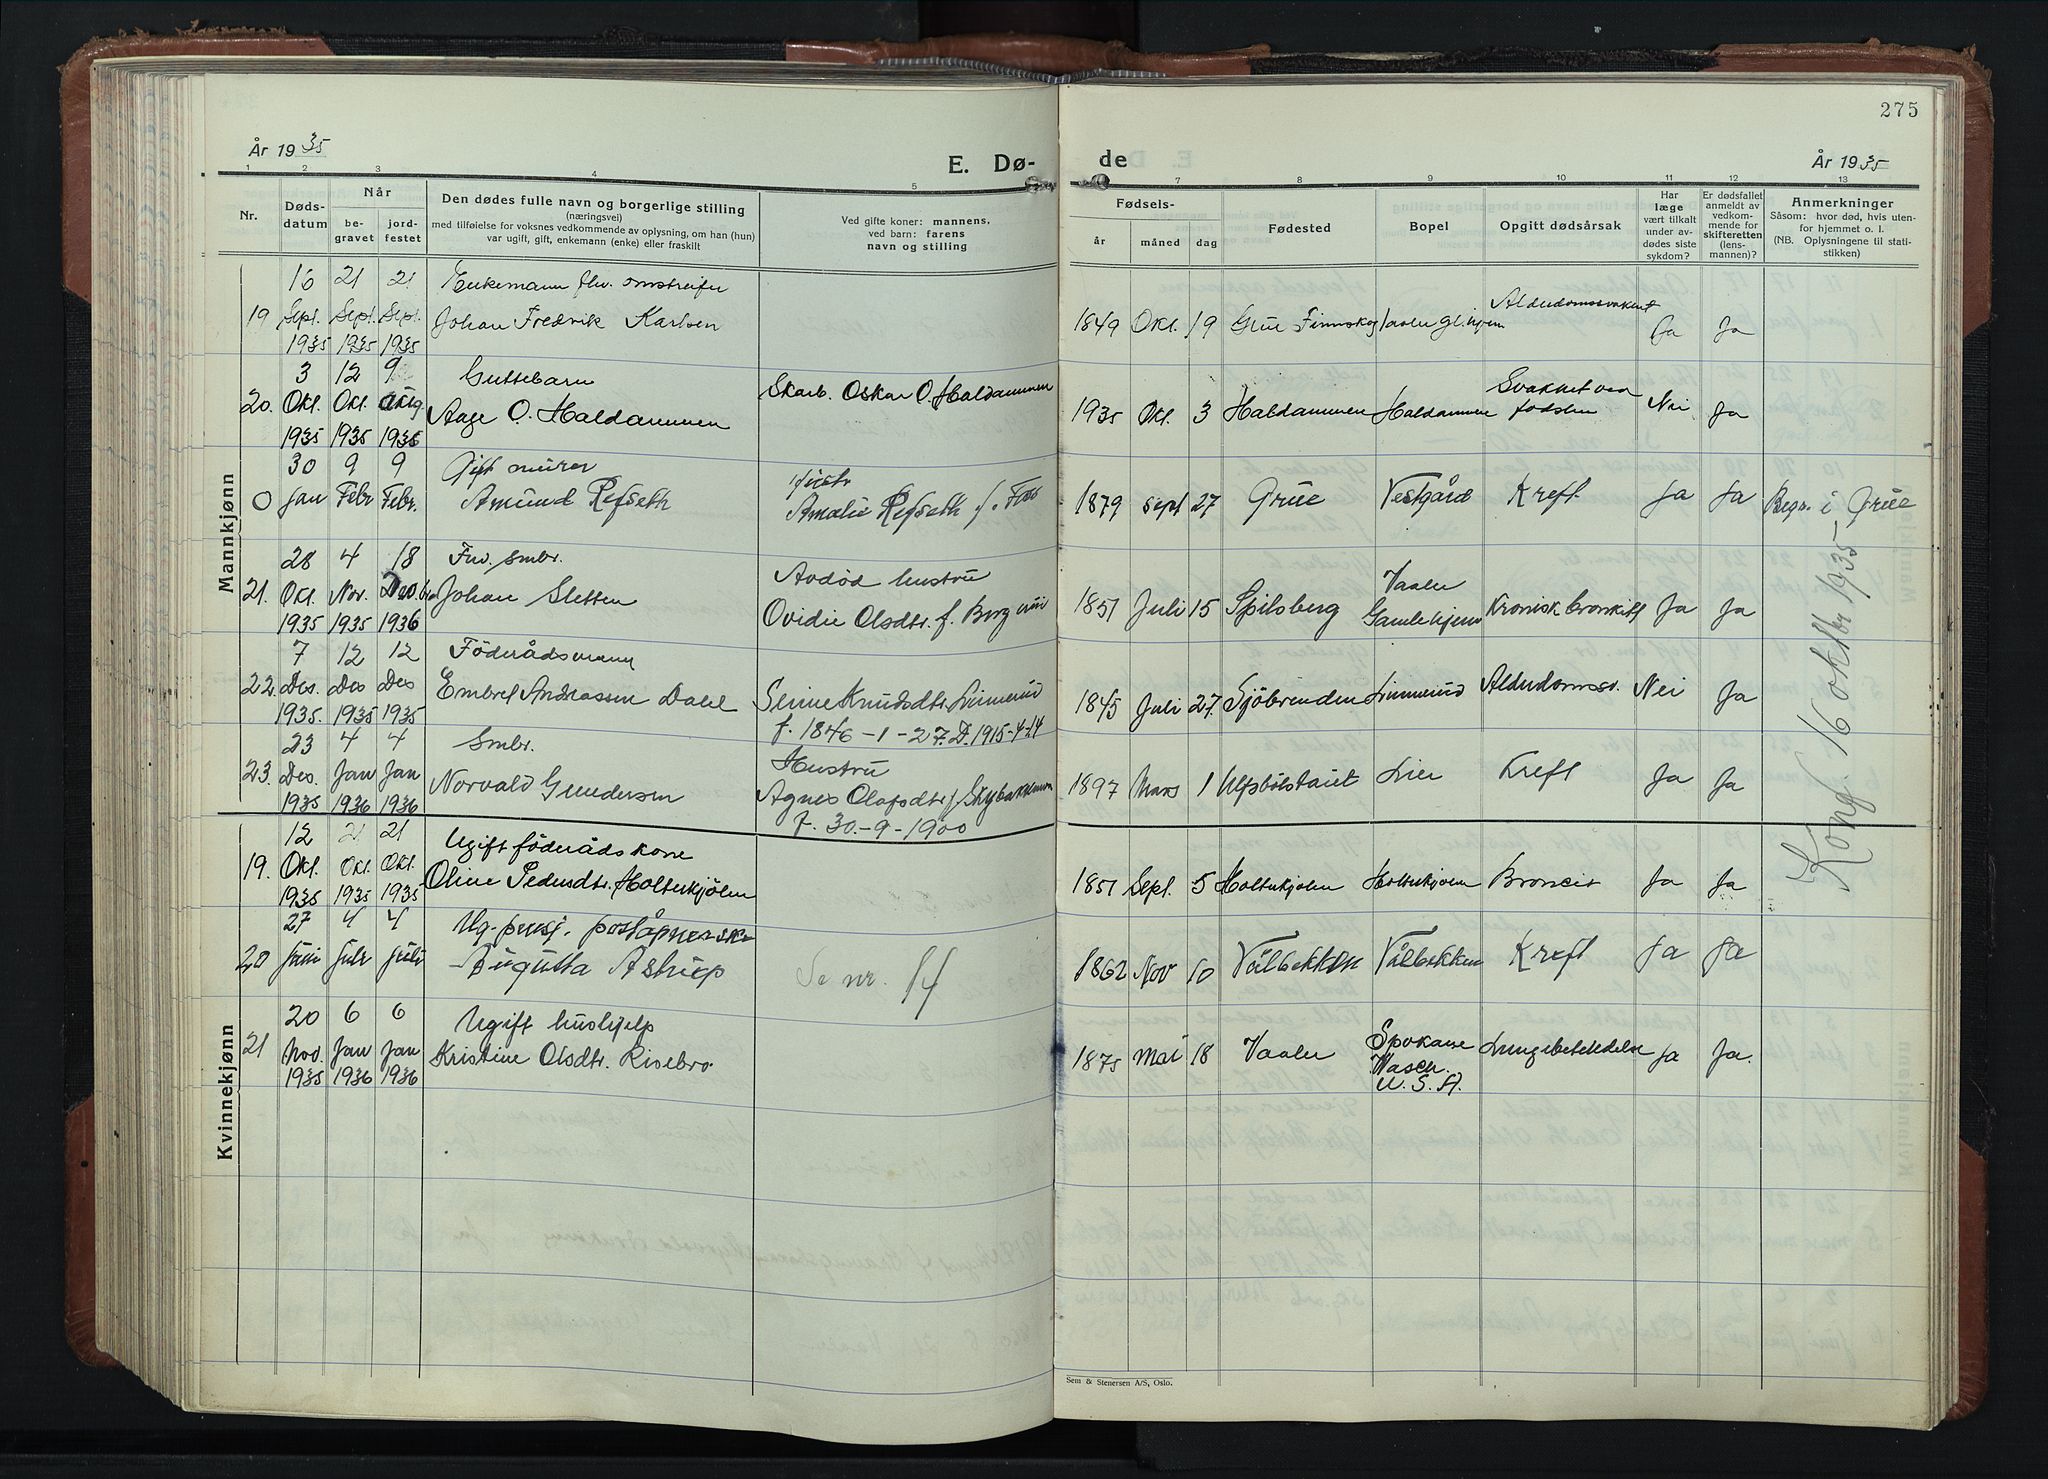 275
År 1935
E. Dø-
de
År 1935
1 2 3 4 5 7 8 9 10 11 12 13
Nr.
Døds-
datum
Når
be-
gravet
jord-
festet
Den dødes fulle navn og borgerlige stilling
(næringsvei)
med tilføielse for voksnes vedkommende av oplysning, om han (hun)
var ugift, gift, enkemann (enke) eller fraskilt
Ved gifte koner: mannens,
ved barn: farens
navn og stilling
Fødsels-
år måned dag
Fødested
Bopel
Opgitt dødsårsak
Har
læge
vært tilkalt
under av-
dødes siste
sykdom?
Er dødsfallet
anmeldt av
vedkom-
mende for
skifteretten
(lens-
mannen)?
Anmerkninger
Såsom: hvor død, hvis uten-
for hjemmet o. l.
(NB. Oplysningene til stati-
stikken)
Mannkjønn
16 21 21 Enkemann fhv. omstreifer
19 Sept. Sept. Sept. Johan Fredrik Karlsen 1849 Okt. 19 Grue Finnskog Vaaler gl.hjem Alderdomssvakhet Ja Ja
1935 1935 1935
3 12 9 Guttebarn Skarb. Oskar O. Haldammen
20. Okt. Okt. Aage O. Haldammen 1935 Okt. 3 Haldammen Haldammen Svakhet ved fødslen Nei Ja
1935 1935 1936
30 9 9 Gift murer hustr
0 Jan Febr Febr. Amund Refseth Amalie Refseth f. 1879 Sept 27 Grue Vestgård Kreft Ja Ja Begr. i Grue
28 4 18 Fhv. smbr. Avdød hustru
21. Okt. Nov. Johan Sletten Ovidie Olsdtr. f. 1851 Juli 15 Spilsberg Vaaler Gamlehjem Kronisk bronkitt Ja Ja
1935 1935 1936
7 12 12 Föderådsmann
22. Des. Des Des Embret Andreassen Dahl Serine Knudsdtr. Linnerud 1845 Juli 27. Sjöbrenden Linnerud Alderdomssv. Nei Ja
1935. 1935 1935 f. 1846-1-27. D. 1915-4-14
23 4 4 Smbr. Hustru
23. Des. Jan Jan Norvald Gundersen Agnes Olafsdtr. f. Skybakkmoen 1897 Mars 1 Ulfsbölstaiet Lier Kreft Ja Ja
1935 1936 1936 f. 30-9-1900
Kvinnekjønn
12 21 21 Ugift föderådskone
19. Okt. Okt. Okt. Oline Pedersdtr. Holterkjölen 1851 Sept. 5 Holterkjölen Holterkjölen Bronkit Ja Ja
1935 1935 1935
27 4 4 Ug. pensj. poståpnerske
20 Juni Juli Juli Augusta Astrup Se nr. 14 1862 Nov 10 Vålbekken Vålbekken Kreft Ja Ja
20 6 6 Ugift hushjelp
21 Nov. Jan Jan Kristine Olsdtr. Risebro 1875 Mai 18 Vaaler Spokane Wasch. U.S.A. Lungebetendelse Ja Ja.
1935 1936 1936
Konf. 16 oktbr 1935
Sem & Stenersen A/S, Oslo.